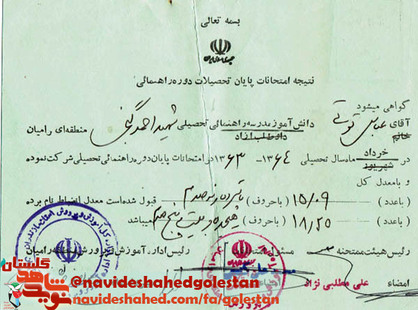 بسمه تعالی
جمهوری اسلامی ایران
نتیجه امتحانات پایان تحصیلات دوره راهنمائی
گواهی میشود
آقای
خانم
دانش‌آموز مدرسه راهنمائی تحصیلی شهید احمد
داوطلب آزاد
منطقه‌ای رامیان
در
خرداد
شهریور
ماه سال تحصیلی ۶۴ - ۱۳۶۳ در امتحانات پایان دوره راهنمائی تحصیلی شرکت نموده
و با معدل کل
(با عدد) ۱۵/۰۹ (با حروف) پانزده و نه صدم قبول شده است معدل انضباط نام برده
(با عدد) ۱۸/۲۵ (با حروف) هیجده و بیست و پنج صدم میباشد
رئیس هیئت ممتحنه
رئیس اداره آموزش و پرورش
امضاء علی مطلبی نژاد
نوید شاهد گلستان
@navideshahedgolestan
navideshahed.com/fa/golestan